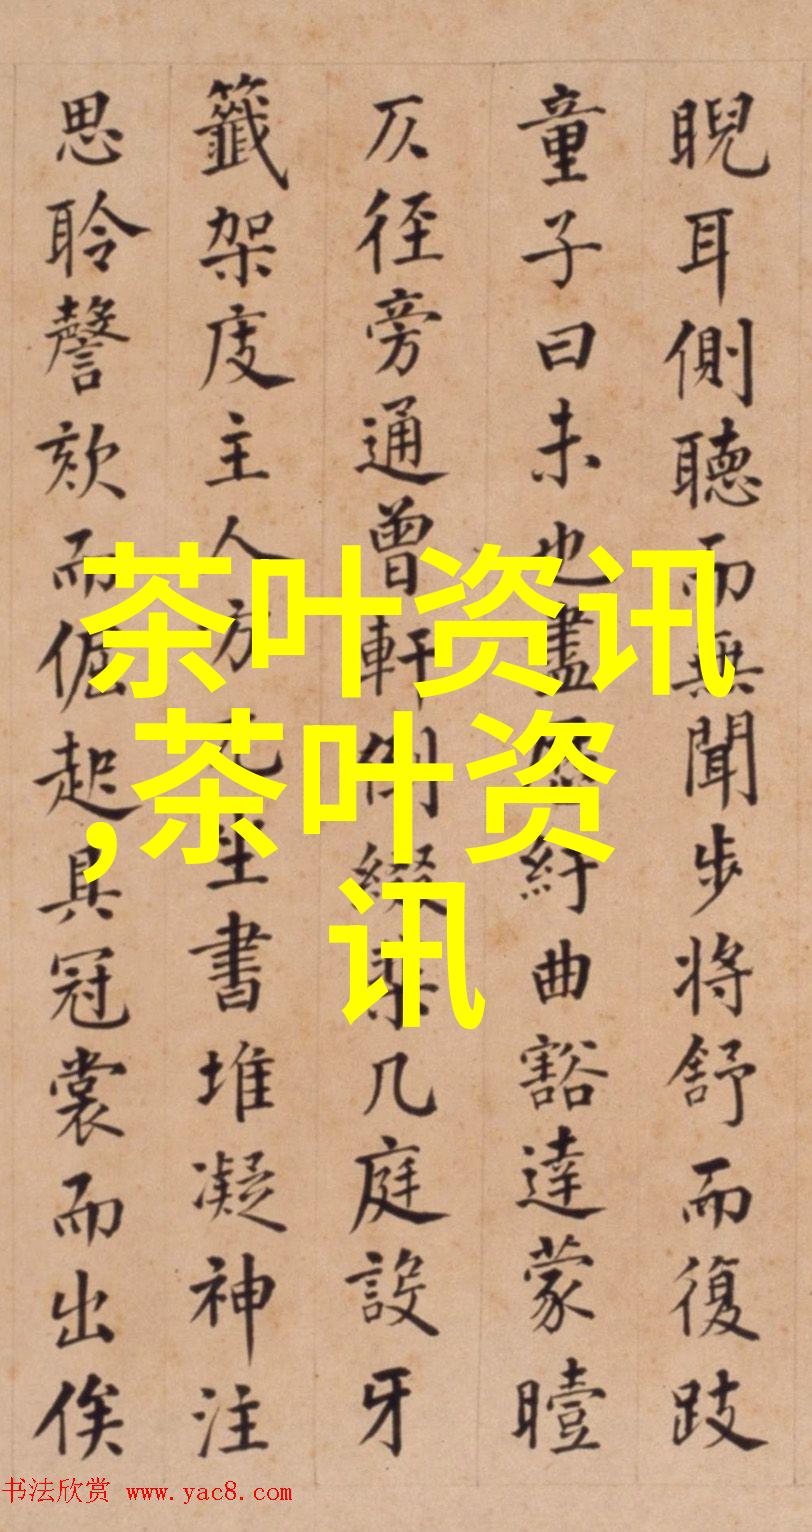 睨耳側聽而無聞步將舒而復跂
童子曰未也盡紆曲豁達蒙曀
仄徑旁通曾軒倒綴棐几庭設牙
籤架庋主人方兀坐書堆凝神注
思聆謦欬而倔起具冠裳而出俟
茶叶资讯
,茶叶资
讯
书法欣赏 www.yac8.com